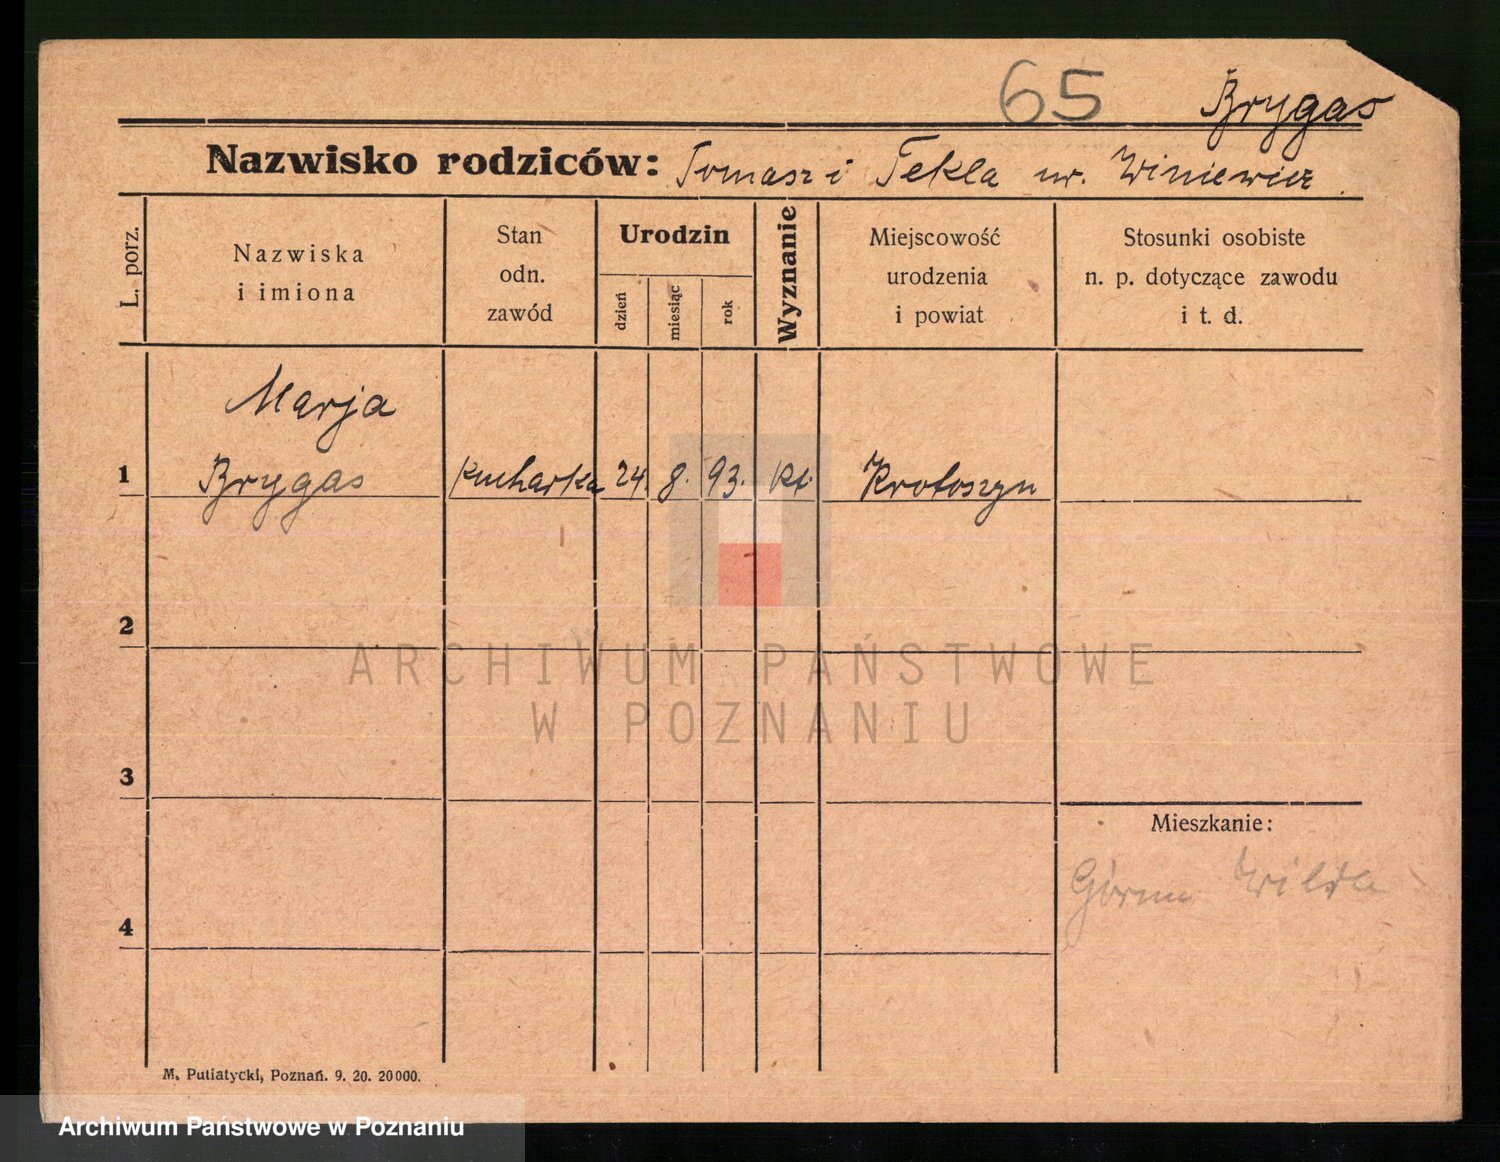 65 Brygas
Nazwisko rodziców: Tomasz i Tekla ur. Winiewicz
L. porz.
Nazwiska
i imiona
Stan
odn.
zawód
Urodzin
dzień
miesiąc
rok
Wyznanie
Miejscowość
urodzenia
i powiat
Stosunki osobiste
n. p. dotyczące zawodu
i t. d.
Marja
1 Brygas Kucharka 24. 8. 93. kt. Krotoszyn
2
ARCHIWUM PAŃSTWOWE
W POZNANIU
3
Mieszkanie:
Górna Wilda
4
M. Putiatycki, Poznań. 9. 20. 20000.
Archiwum Państwowe w Poznaniu